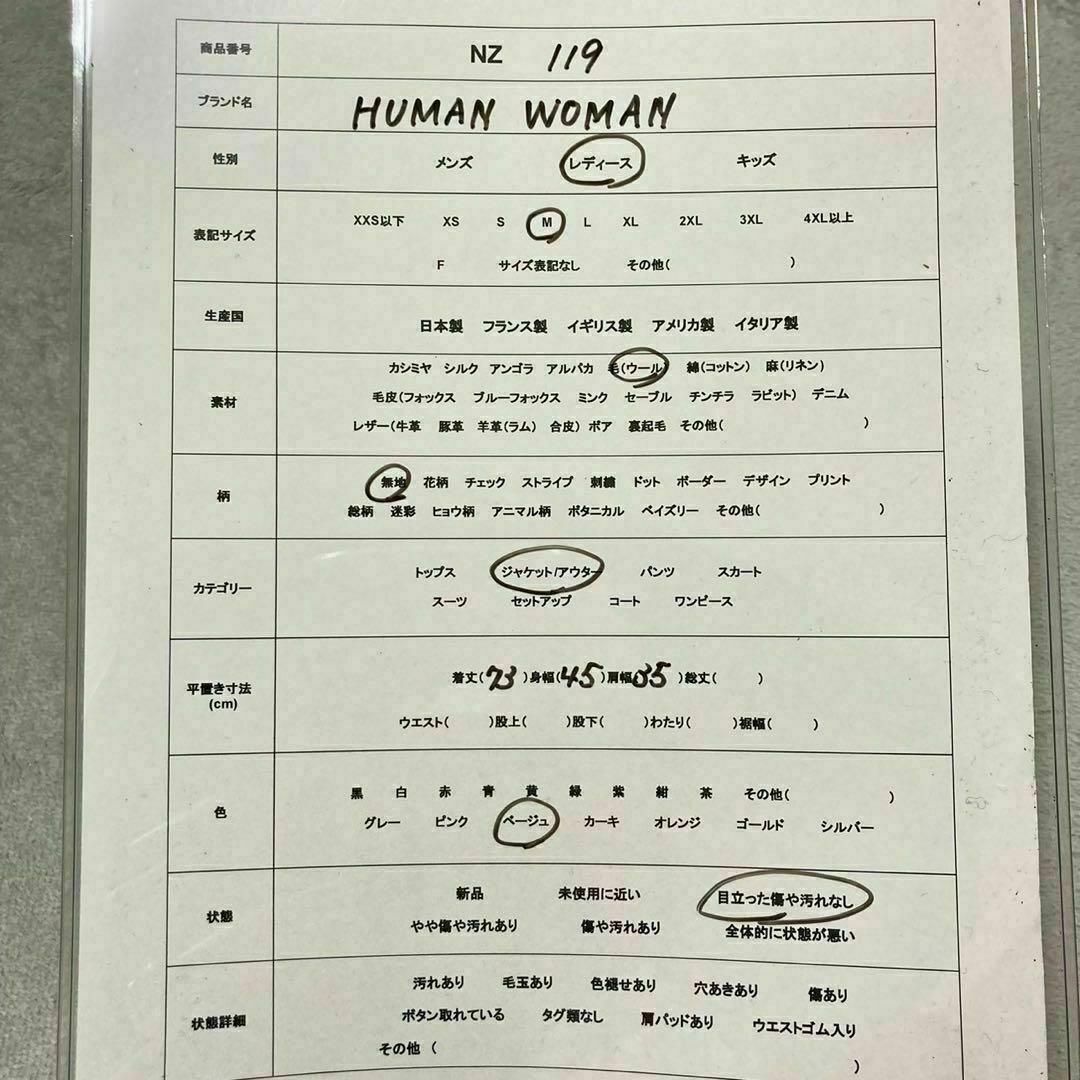 商品番号 NZ 119
ブランド名 HUMAN WOMAN
性別 メンズ レディース キッズ
表記サイズ XXS以下 XS S M L XL 2XL 3XL 4XL以上
F サイズ表記なし その他( )
生産国 日本製 フランス製 イギリス製 アメリカ製 イタリア製
カシミヤ シルク アンゴラ アルパカ 毛(ウール) 綿(コットン) 麻(リネン)
素材 毛皮(フォックス ブルーフォックス ミンク セーブル チンチラ ラビット) デニム
レザー(牛革 豚革 羊革(ラム) 合皮) ボア 裏起毛 その他( )
柄 無地 花柄 チェック ストライプ 刺繍 ドット ボーダー デザイン プリント
総柄 迷彩 ヒョウ柄 アニマル柄 ボタニカル ペイズリー その他( )
カテゴリー トップス ジャケット/アウター パンツ スカート
スーツ セットアップ コート ワンピース
平置き寸法 着丈(73)身幅(45)肩幅(35)総丈( )
(cm) ウエスト( )股上( )股下( )わたり( )裾幅( )
色 黒 白 赤 青 黄 緑 紫 紺 茶 その他( )
グレー ピンク ベージュ カーキ オレンジ ゴールド シルバー
状態 新品 未使用に近い 目立った傷や汚れなし
やや傷や汚れあり 傷や汚れあり 全体的に状態が悪い
状態詳細 汚れあり 毛玉あり 色褪せあり 穴あきあり 傷あり
ボタン取れている タグ類なし 肩パッドあり ウエストゴム入り
その他 ( )